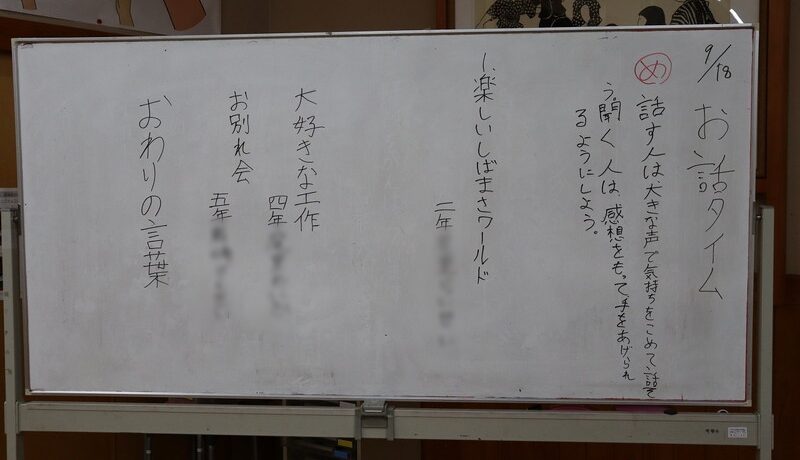 9/18 お話タイム
め 話す人は大きな声で気持ちをこめて、話そ
う。聞く人は、感想をもって手をあげられ
るようにしよう。
1、楽しいしばまさワールド
二年
大好きな工作
四年
お別れ会
五年
おわりの言葉